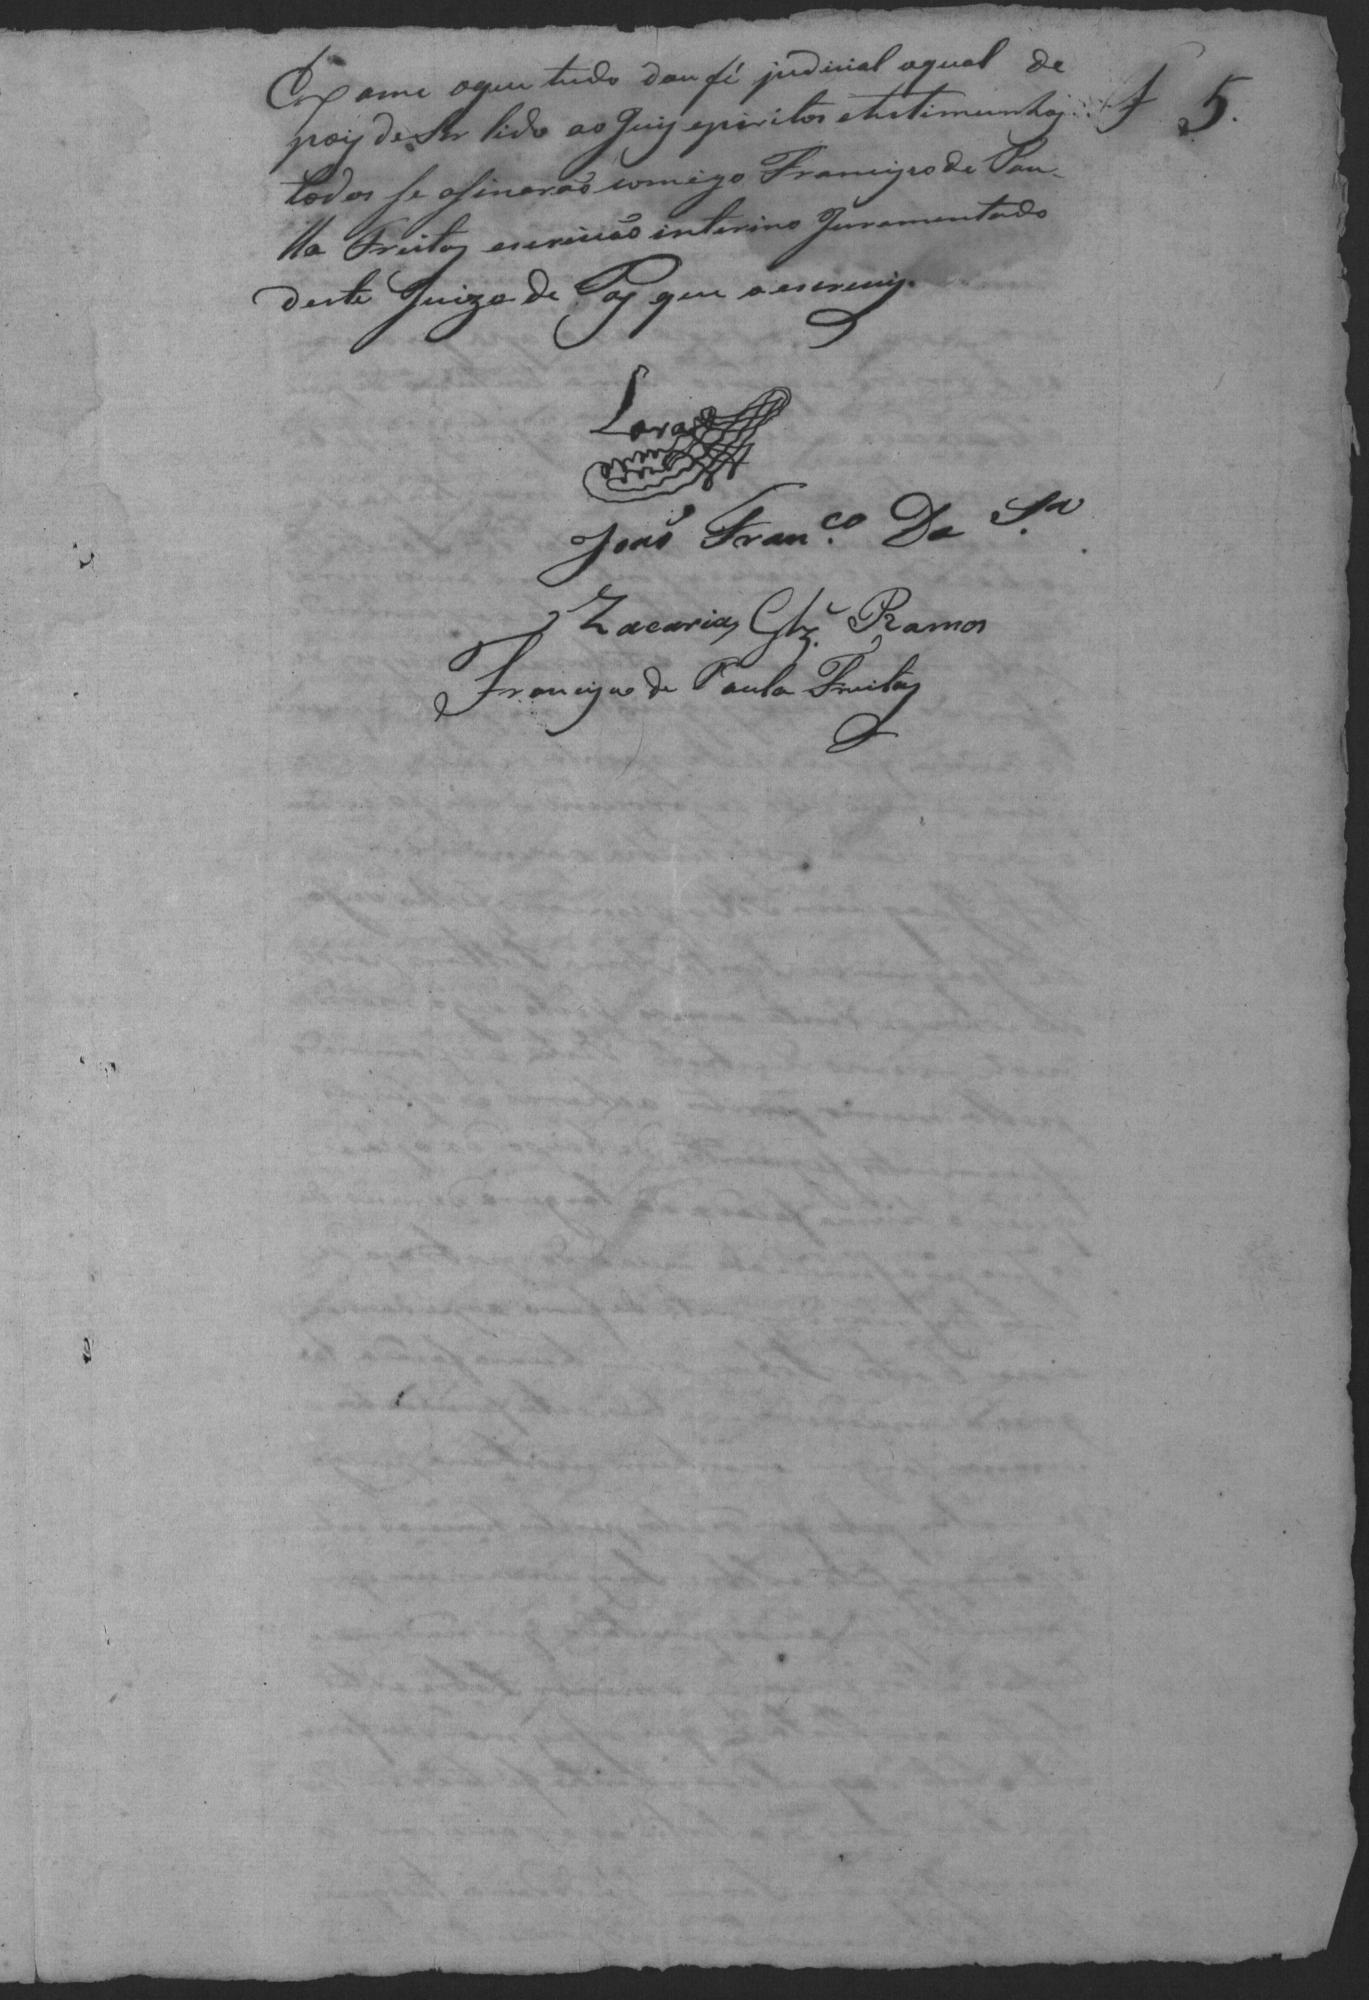 Exame oque tudo dou fé judicial aqual de
pois de Ser lido ao Juiz eperitos etestimunhas
todos se asinarão comigo Francisco de Pau-
lla Freitas escrivão interino Juramentado
deste Juizo de Paz que o escrevy.
f 5.
Lara
João Fran.co De S.a
Zacarias Glz. Ramos
Francisco de Paula Freitas